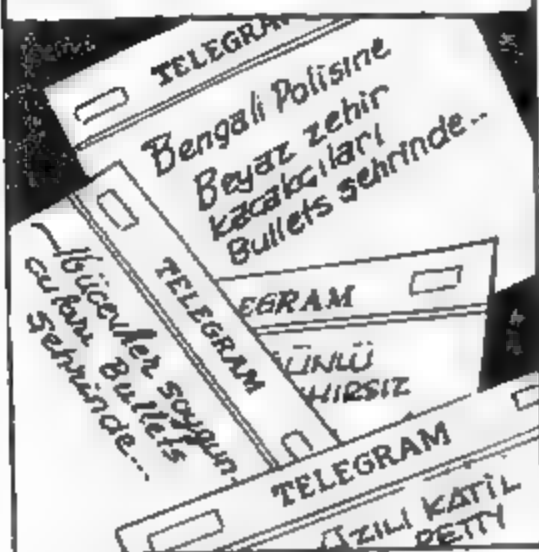 TELEGRAM
Bengali Polisine
Beyaz zehir
kaçakçıları
Bullets şehrinde..
TELEGRAM
Mücevher soygun
cuları Bullets
şehrinde...
EGRAM
ÜNLÜ
HIRSIZ
TELEGRAM
ÜZILI KATİL
PETTY